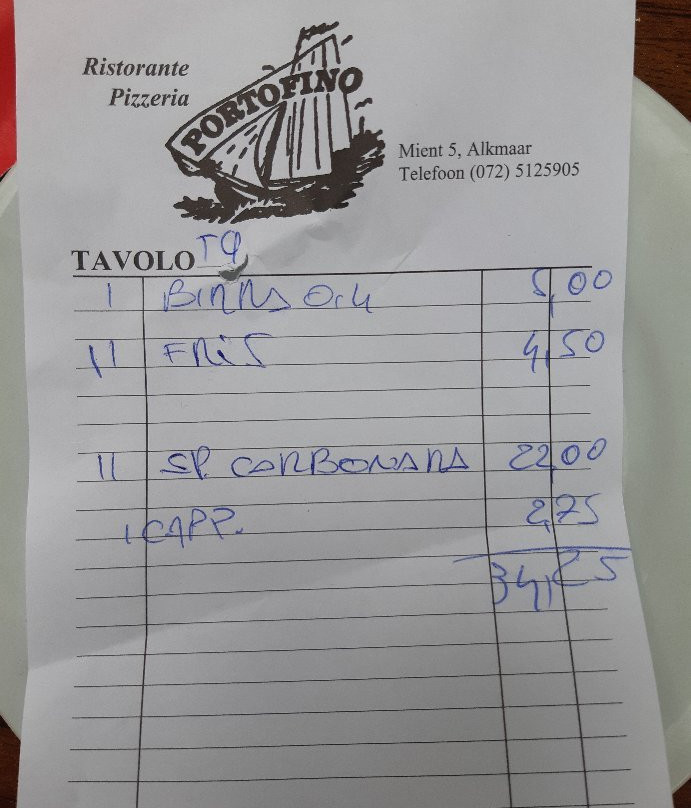 Ristorante
Pizzeria
PORTOFINO
Mient 5, Alkmaar
Telefoon (072) 5125905
TAVOLO T9
I BIRRA 0,4 5,00
II FRIS 4,50
II SP. CARBONARA 22,00
1 CAPP. 2,75
34,25